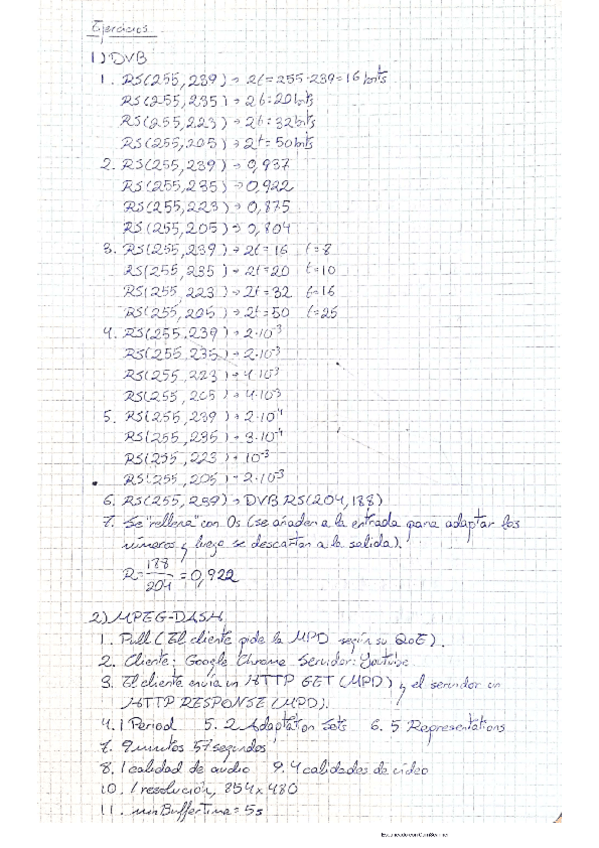 Ejercicios
1) DVB
1. RS(255,239) → 2t = 255-239 = 16 bits
RS(255,235) → 2t = 20 bits
RS(255,223) → 2t = 32 bits
RS(255,205) → 2t = 50 bits
2. RS(255,239) → 0,937
RS(255,235) → 0,922
RS(255,223) → 0,875
RS(255,205) → 0,804
3. RS(255,239) → 2t = 16 t = 8
RS(255,235) → 2t = 20 t = 10
RS(255,223) → 2t = 32 t = 16
RS(255,205) → 2t = 50 t = 25
4. RS(255,239) → 2·10⁻³
RS(255,235) → 2·10⁻³
RS(255,223) → 4·10⁻³
RS(255,205) → 4·10⁻³
5. RS(255,239) → 2·10⁻⁴
RS(255,235) → 3·10⁻⁴
RS(255,223) → 10⁻³
RS(255,205) → 2·10⁻³
6. RS(255,239) → DVB RS(204,188)
7. Se "rellena" con 0s (se añaden a la entrada para adaptar los
números y luego se descartan a la salida).
R = 188/204 = 0,922
2) MPEG-DASH
1. Pull (El cliente pide la MPD según su QoE).
2. Cliente: Google Chrome Servidor: Youtube
3. El cliente envía un HTTP GET (MPD) y el servidor un
HTTP RESPONSE (MPD).
4. 1 Period 5. 2 Adaptation Sets 6. 5 Representations
7. 9 minutos 57 segundos
8. 1 calidad de audio 9. 4 calidades de vídeo
10. 1 resolución, 854x480
11. minBufferTime = 5s
Escaneado con CamScanner